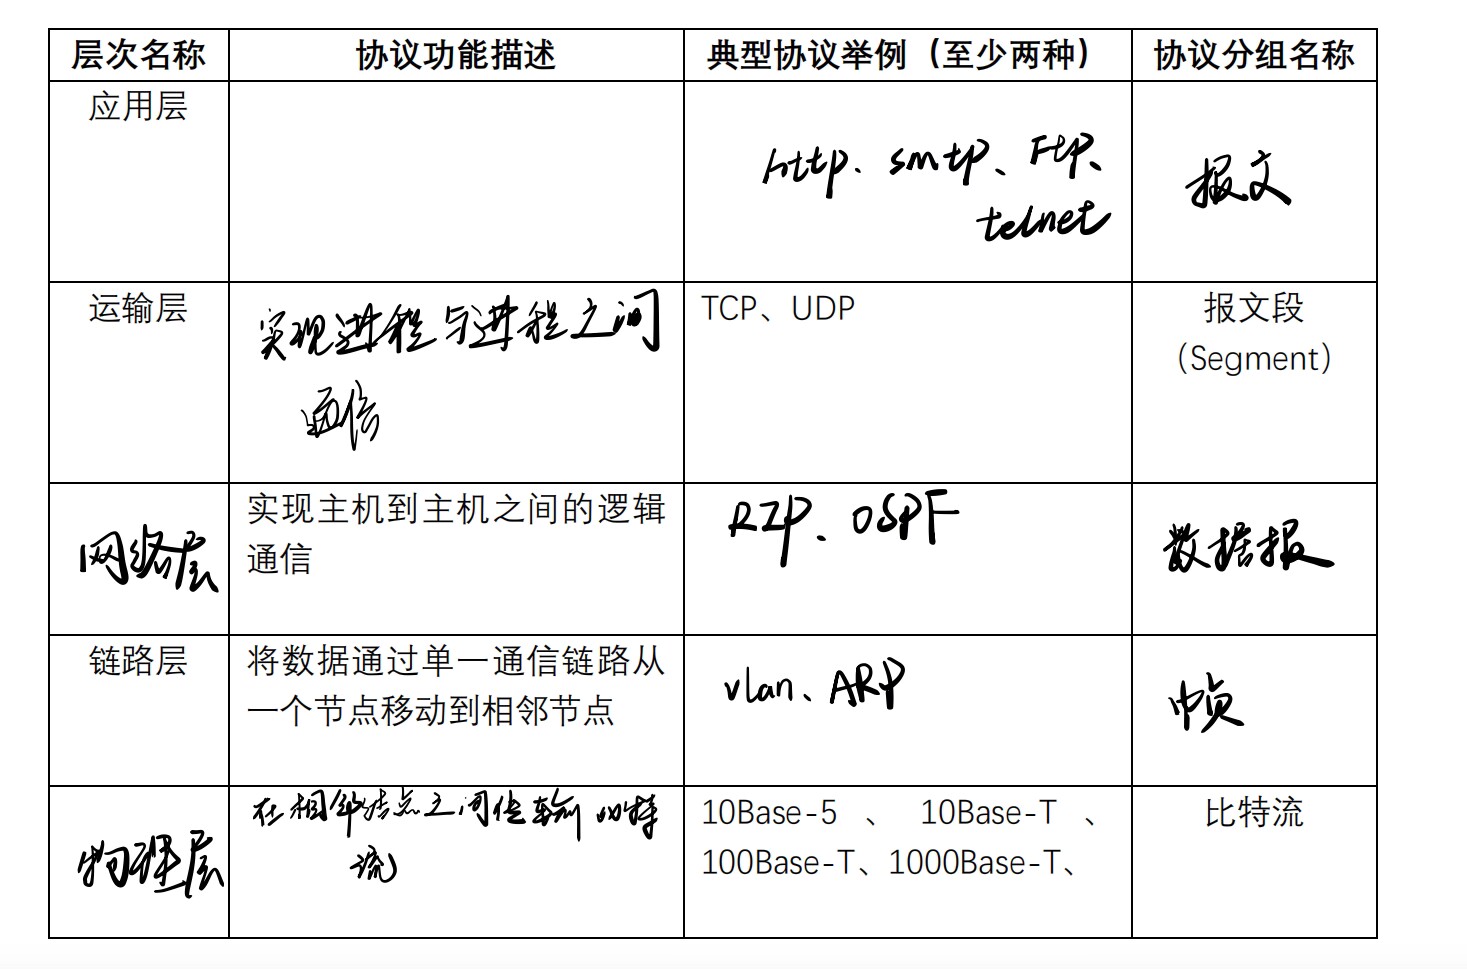 层次名称 协议功能描述 典型协议举例（至少两种） 协议分组名称
应用层
http、smtp、FtP、
telnet
报文
运输层
实现进程与进程之间
通信
TCP、UDP
报文段
（Segment）
网络层
实现主机到主机之间的逻辑
通信
RIP、OSPF
数据报
链路层
将数据通过单一通信链路从
一个节点移动到相邻节点
vlan、ARP
帧
物理层
在相邻结点之间传输比特
流
10Base-5 、 10Base-T 、
100Base-T、1000Base-T、
比特流